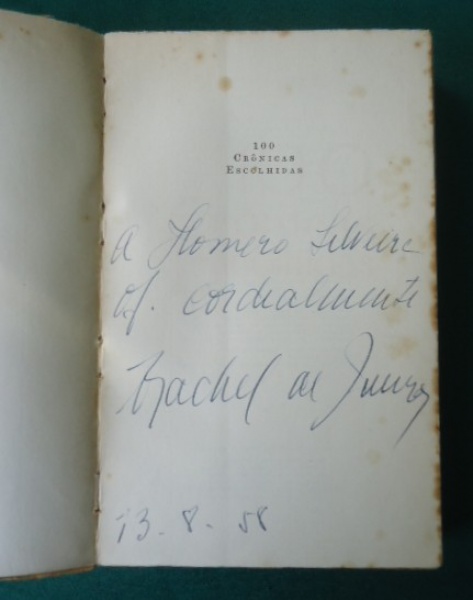 100
CRÔNICAS
ESCOLHIDAS
A Homero Silveira
of. cordialmente
Rachel de Queiroz
13-8-58